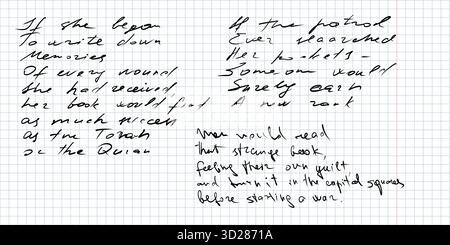 If she began
To write down
Memories
Of every wound
She had received
her book would find
as much success
as the Torah
or the Quran
If the patrol
Ever searched
Her pockets -
Someone would
Surely earn
A new rank
Men would read
that strange book,
feeling their own guilt
and burn it in the capital squares
before starting a war.
alamy
Image ID: 3D2871A
www.alamy.com